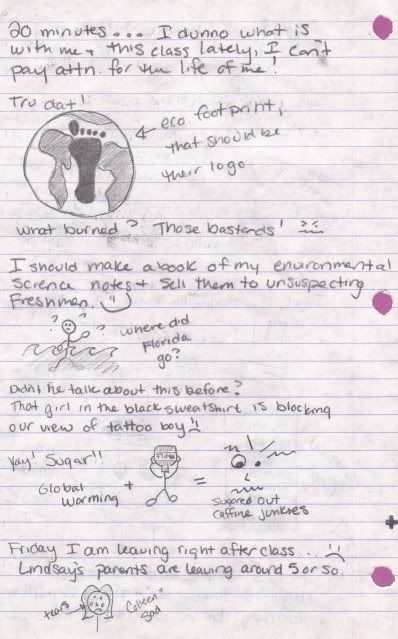 20 minutes... I dunno what is
with me + this class lately, I can't
pay attn. for the life of me!
Tru dat!
← eco. footprint,
that should be
their logo.
What burned? Those bastards!
I should make a book of my environmental
Science notes + sell them to unsuspecting
Freshmen.
? ? ?
where did
Florida
go?
Didn't he talk about this before?
That girl in the black sweatshirt is blocking
our view of tattoo boy
Yay! Sugar!!
Global
Warming
+
=
sugared out
caffine junkies
Friday I am leaving right after class...
Lindsay's parents are leaving around 5 or so.
tears
Colleen =
Sad